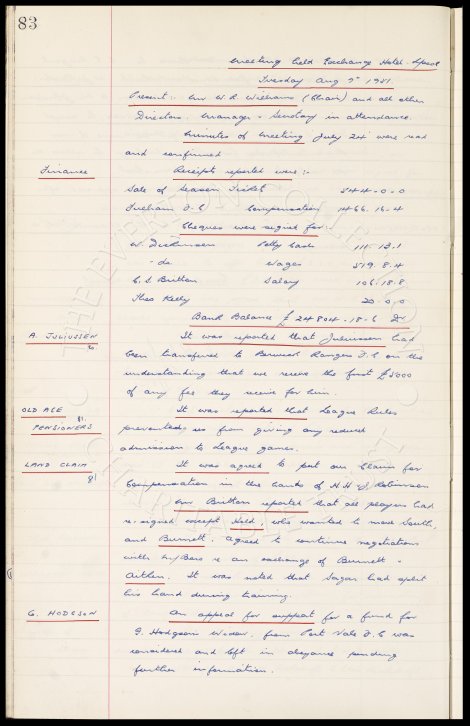 83
Meeting held Exchange Hotel L'pool
Tuesday Aug 7th 1951.
Present:- Mr W. R. Williams (Chair) and all other
Directors. Manager - Secretary in attendance.
Minutes of Meeting July 24th were read
and confirmed
Finance
Receipts reported were:-
Sale of Season Ticket 544-0-0
Fulham F.C. Compensation 1466.16-4
Cheques were signed for
W. Dickinson Petty Cash 111.13.1
- do Wages 519.8.4
C. S. Britton Salary 106.18.8
Theo Kelly 20.0.0
Bank Balance £24804-18-6 Dr
A. JULIUSSEN
It was reported that Juliussen had
been transferred to Berwick Rangers F.C on the
understanding that we receive the first £5000
of any fee they receive for him.
OLD AGE
PENSIONERS 81.
It was reported that League Rules
prevented us from giving any reduced
admission to League games.
LAND CLAIM
81
It was agreed to put our claim for
Compensation in the hands of H. H. J Robinson
Mr Britton reported that all players had
re-signed except Held, who wanted to move South,
and Burnett. agreed to continue negotiations
with M/Boro re an exchange of Burnett -
Aitken. It was noted that Sagar had split
his hand during training.
G. HODGSON
An appeal for support for a fund for
G. Hodgsons Widow, from Port Vale F.C was
considered and left in abeyance pending
further information.
THE EVERTON COLLECTION
CHARITABLE TRUST